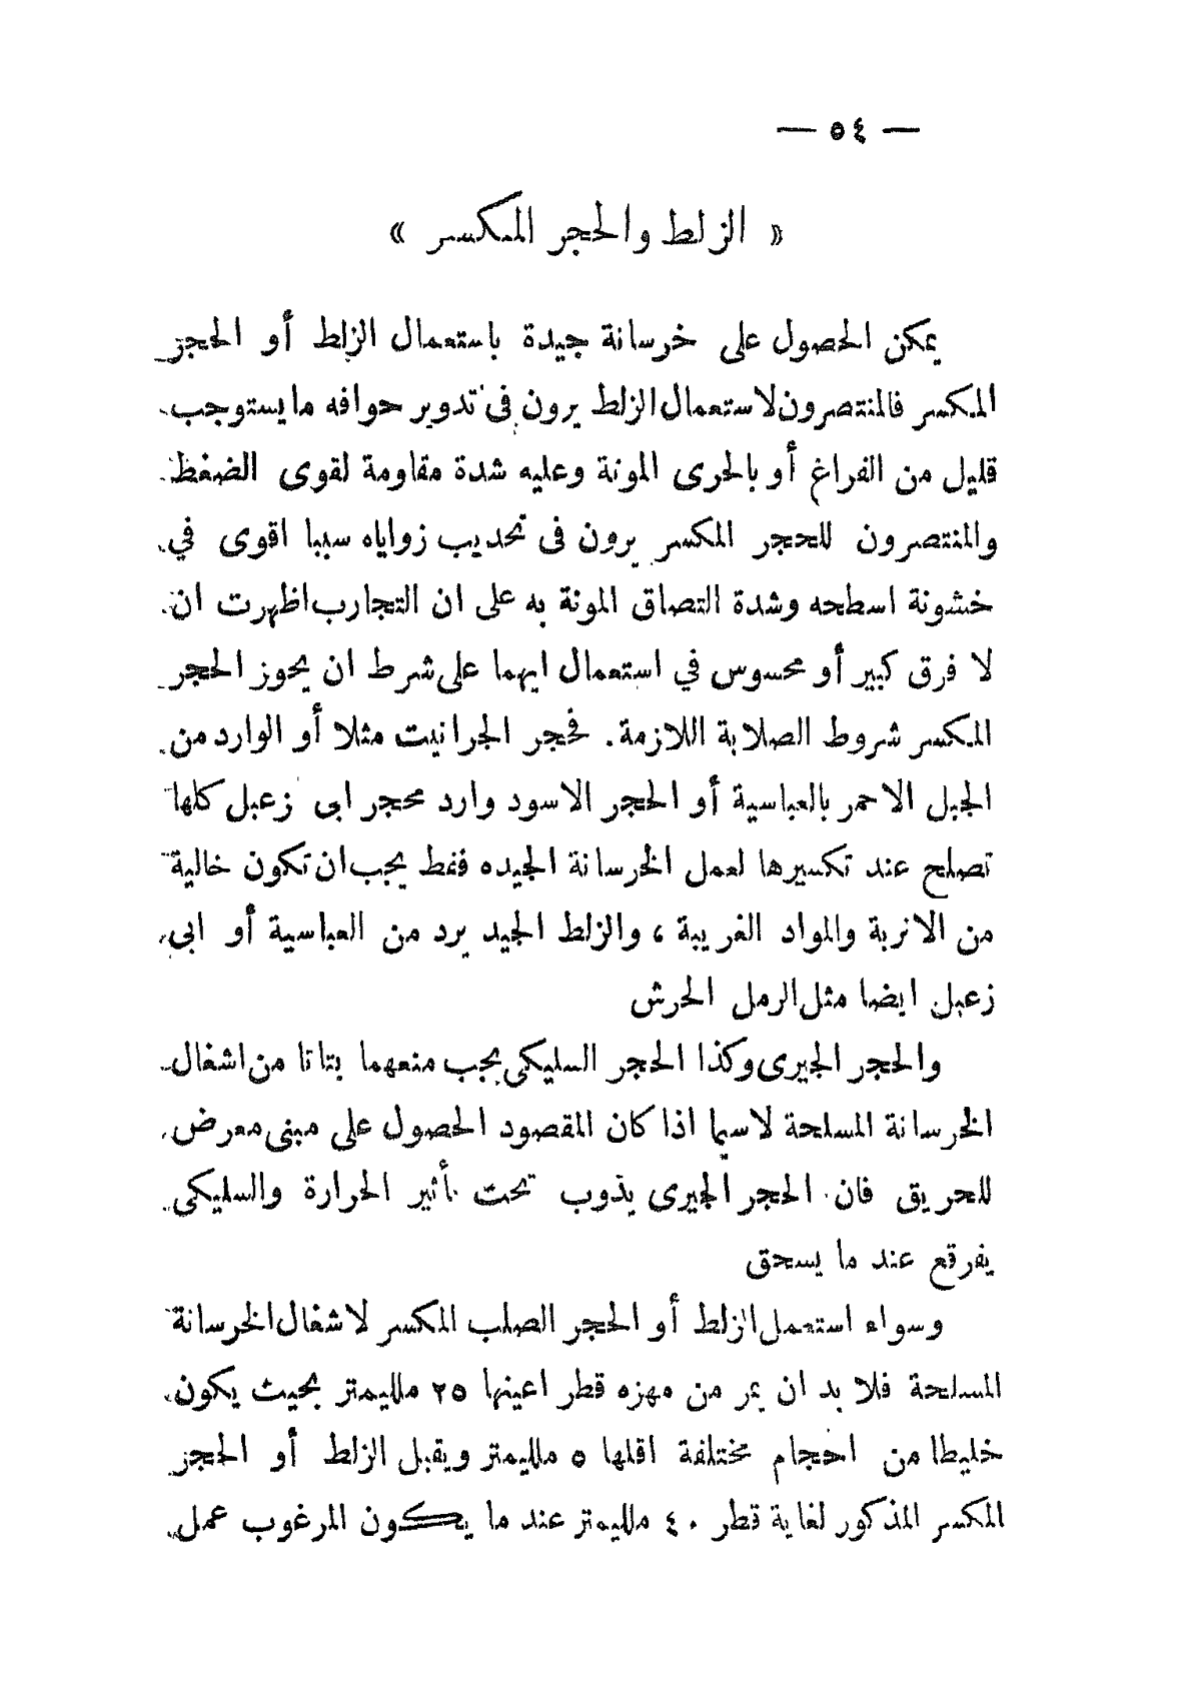 — ٥٤ —
« الزلط والحجر المكسر »
يمكن الحصول على خرسانة جيدة باستعمال الزلط أو الحجر
المكسر فالمنتصرون لاستعمال الزلط يرون فى تدوير حوافه ما يستوجب
قليل من الفراغ أو بالحرى المونة وعليه شدة مقاومة لقوى الضغط
والمنتصرون للحجر المكسر يرون فى تحديب زواياه سببا اقوى في
خشونة اسطحه وشدة التصاق المونة به على ان التجارب اظهرت ان
لا فرق كبير أو محسوس في استعمال ايهما على شرط ان يحوز الحجر
المكسر شروط الصلابة اللازمة. فحجر الجرانيت مثلا أو الوارد من
الجبل الاحمر بالعباسية أو الحجر الاسود وارد محجر ابى زعبل كلها
تصلح عند تكسيرها لعمل الخرسانة الجيده فقط يجب ان تكون خالية
من الاتربة والمواد الغريبة ، والزلط الجيد يرد من العباسية أو ابى
زعبل ايضا مثل الرمل الحرش
والحجر الجيرى وكذا الحجر السليكى يجب منعهما بتاتا من اشغال
الخرسانة المسلحة لاسيما اذا كان المقصود الحصول على مبنى معرض
للحريق فان الحجر الجيرى يذوب تحت تأثير الحرارة والسليكى
يفرقع عند ما يسحق
وسواء استعمل الزلط أو الحجر الصلب المكسر لاشغال الخرسانة
المسلحة فلا بد ان يمر من مهزه قطر اعينها ٢٥ ملليمتر بحيث يكون
خليطا من احجام مختلفة اقلها ٥ ملليمتر ويقبل الزلط أو الحجر
المكسر المذكور لغاية قطر ٤٠ ملليمتر عند ما يكون المرغوب عمل